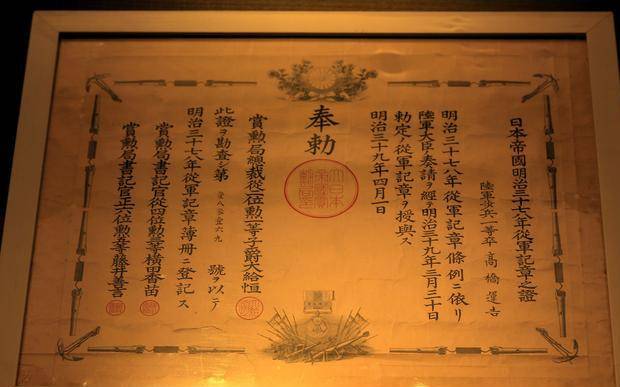 日本帝國明治三十七八年從軍記章之證
陸軍歩兵一等卒 高橋運吉
明治三十七八年從軍記章條例ニ依リ
陸軍大臣奏請ヲ經明治三十九年三月三十日
勅定ノ從軍記章ヲ授與ス
明治三十九年四月一日
奉勅
賞勲局總裁從二位勲一等子爵大給恒
此證ヲ勘査シ第 號ヲ以テ
明治三十七八年從軍記章簿冊ニ登記ス
賞勲局書記官從四位勲三等横田香苗
賞勲局書記官正六位勲五等藤井善言